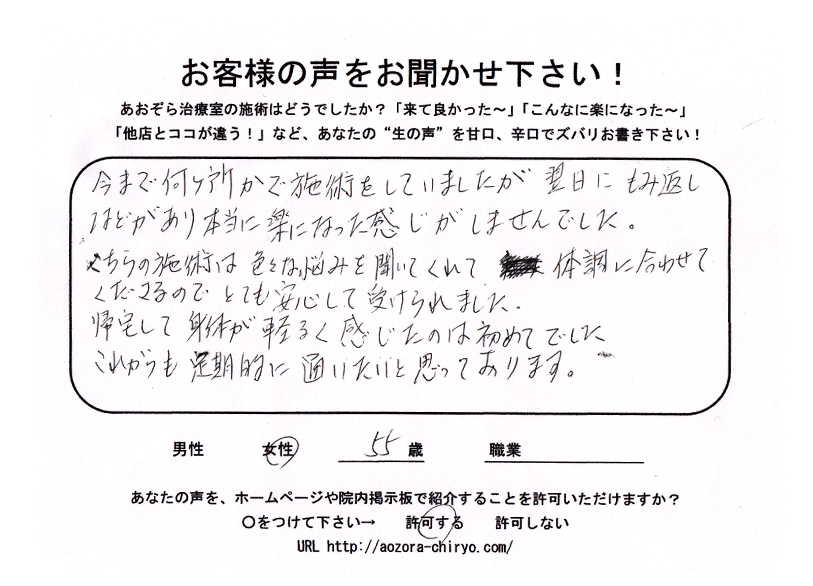 お客様の声をお聞かせ下さい！
あおぞら治療室の施術はどうでしたか？「来て良かった～」「こんなに楽になった～」
「他店とココが違う！」など、あなたの“生の声”を甘口、辛口でズバリお書き下さい！
今まで何ヶ所かで施術をしていましたが 翌日にもみ返し
などがあり本当に楽になった感じがしませんでした。
こちらの施術は 色々な悩みを聞いてくれて 体調に合わせて
くださるのでとても安心して受けられました。
帰宅して身体が軽るく感じたのは初めてでした
これからも定期的に通いたいと思ってあります。
男性 女性 55 歳 職業
あなたの声を、ホームページや院内掲示板で紹介することを許可いただけますか？
〇をつけて下さい→ 許可する 許可しない
URL http://aozora-chiryo.com/